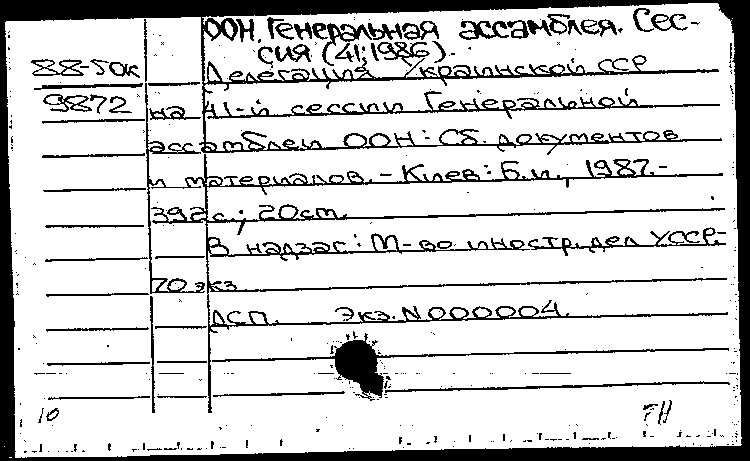 ООН. Генеральная ассамблея. Сес-
сия (41; 1986).
88-5ок
Делегация Украинской ССР
9872
на 41-й сессии Генеральной
ассамблеи ООН: Сб. документов
и материалов. - Киев: Б.и., 1987.-
392 с.; 20 ст.
В надзаг: М-во иностр. дел УССР.-
70 экз.
ДСП. Экз. N 000004.
10